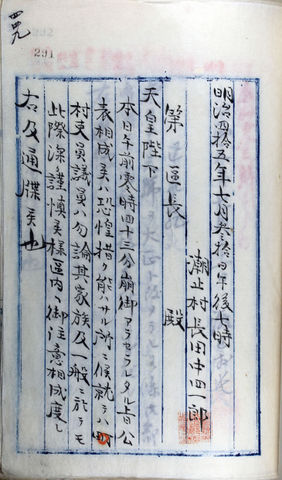 四四九
291
明治四拾五年七月参拾日午後十時
潮止村長田中四一郎
第 區長 殿
天皇陛下
本日午前零時四十三分崩御アラセラレタル旨公
表相成実ハ恐惶措ク能ハサル所ニ候就テハ
村吏員議員ハ勿論其家族及一般ニ於テモ
此際深謹慎実様區内ヘ御注意相成度
右及通牒候也